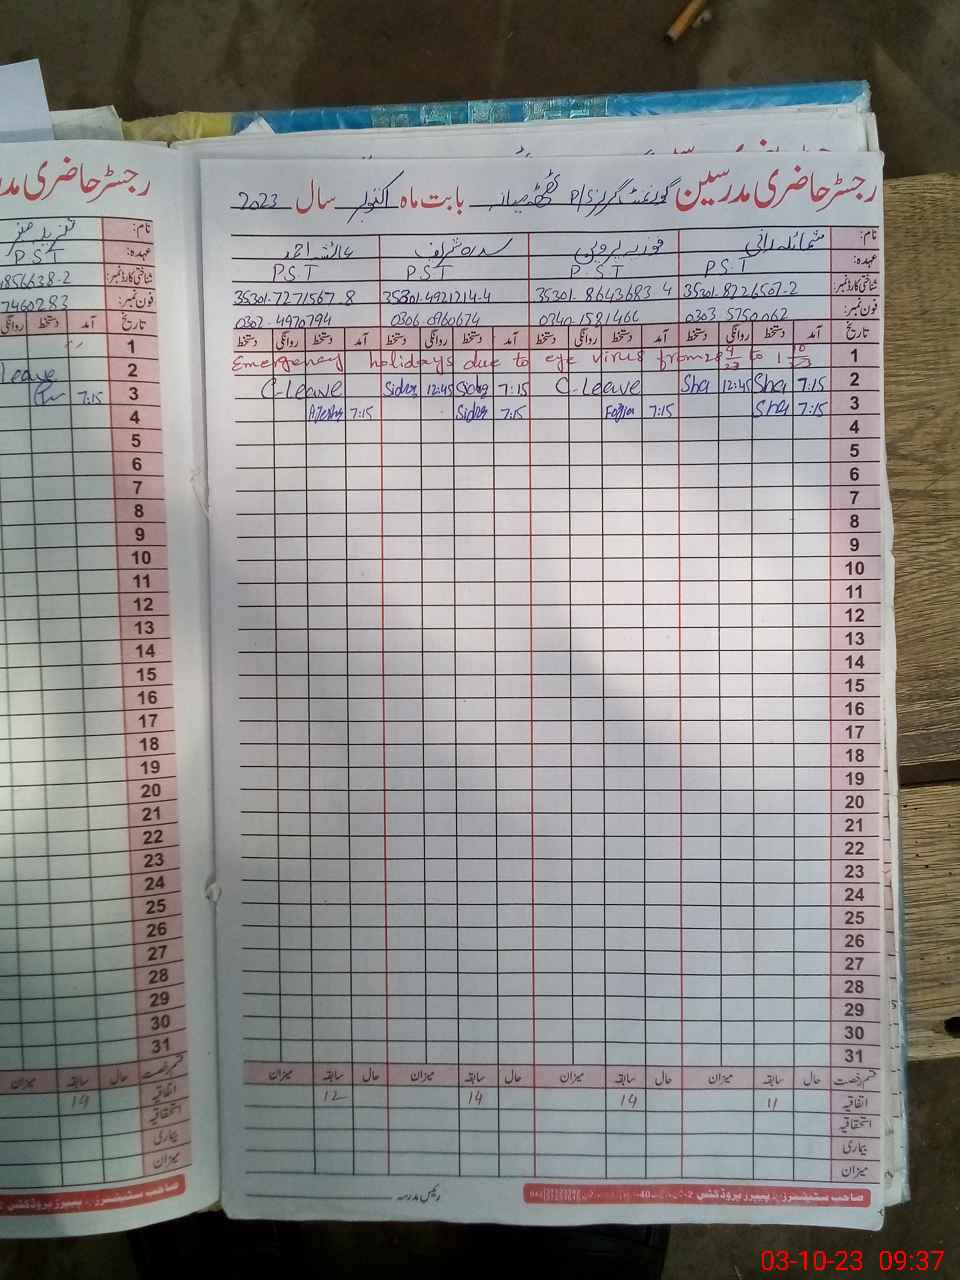 رجسٹر حاضری مدرسین گورنمنٹ گرلز P/S ٹھٹھہ بابت ماہ اکتوبر سال 2023
نام: شمائلہ رانی فوزیہ پروین سدرہ شریف عائشہ احمد
عہدہ: P.S.T P.S.T P.S.T P.S.T
شناختی کارڈ نمبر: 35301-8226507-2 35301-8643683-4 35301-4921214-4 35301-7271567-8
فون نمبر: 0303 5750062 0740-1521466 0306-0960674 0302-4970794
تاریخ آمد دستخط روانگی دستخط آمد دستخط روانگی دستخط آمد دستخط روانگی دستخط آمد دستخط روانگی دستخط
1 Emergency holidays due to eye virus from 28 9/23 to 1 10/23
2 7:15 Sha 12:45 Sha C-Leave 7:15 Sidra 12:45 Sidra C-Leave
3 7:15 Sha 7:15 Fozia 7:15 Sidra 7:15
4
5
6
7
8
9
10
11
12
13
14
15
16
17
18
19
20
21
22
23
24
25
26
27
28
29
30
31
قسم رخصت حال سابقہ میزان حال سابقہ میزان حال سابقہ میزان حال سابقہ میزان
اتفاقیہ 11 14 14 12
استحقاقیہ
بیماری
میزان
رئیس مدرسہ
رجسٹر حاضری
نام:
عہدہ: P.S.T
شناختی کارڈ نمبر: 1856638-2
فون نمبر: 7460283
تاریخ آمد دستخط روانگی
1
2 Leave
3 7:15
4
5
6
7
8
9
10
11
12
13
14
15
16
17
18
19
20
21
22
23
24
25
26
27
28
29
30
31
قسم رخصت حال سابقہ میزان
اتفاقیہ 14
استحقاقیہ
بیماری
میزان
03-10-23 09:37